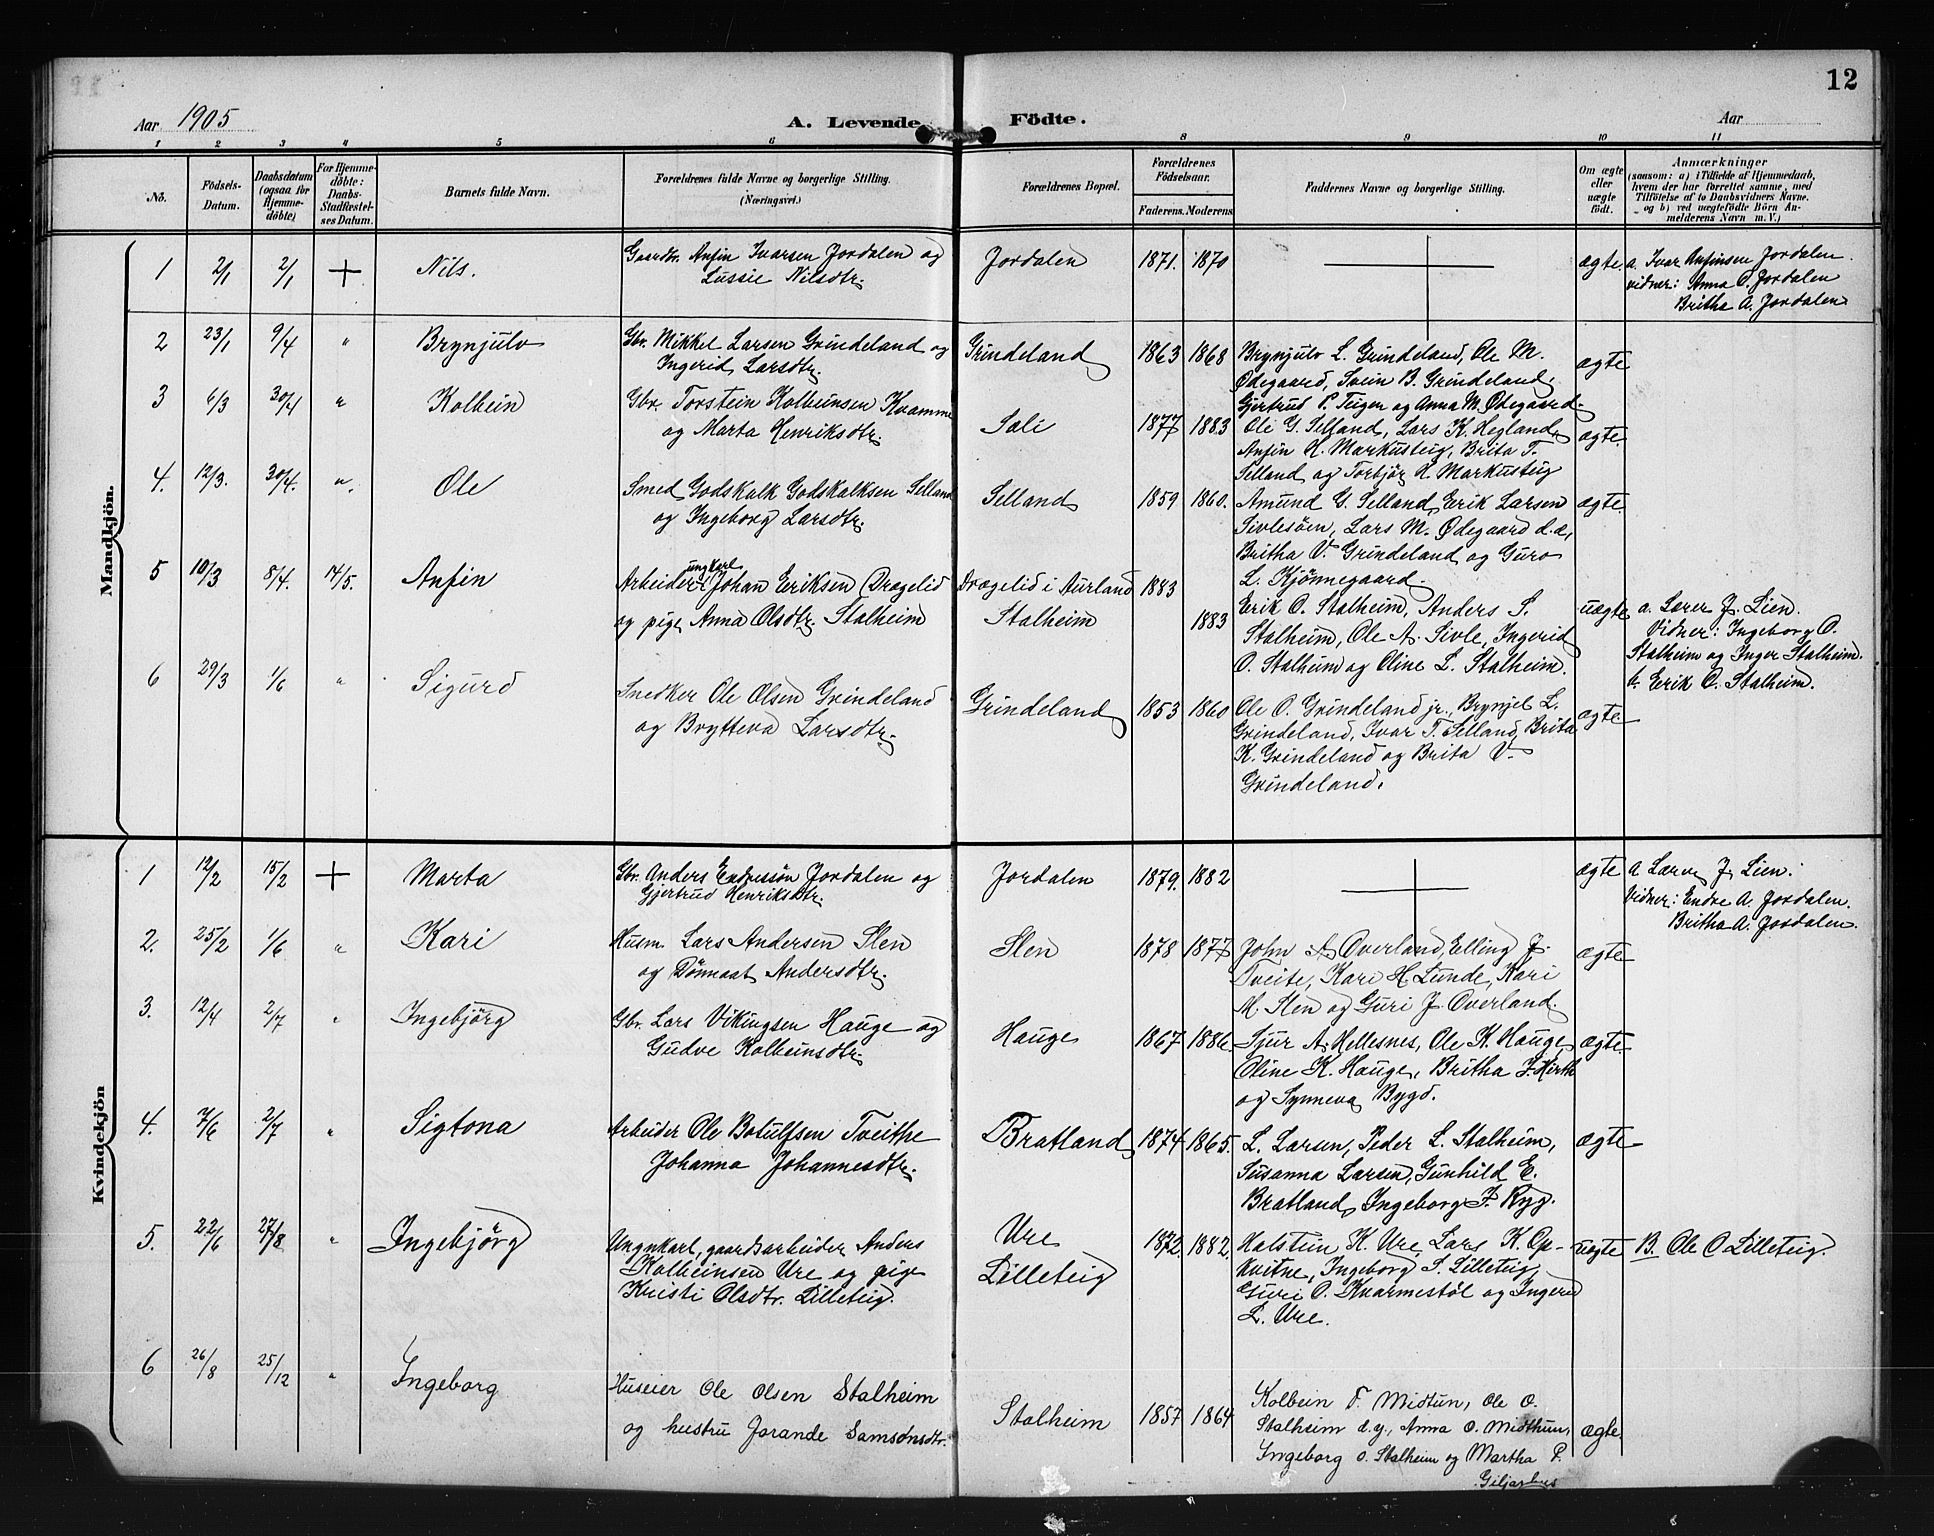 12
Aar 1905 A. Levende Fødte. Aar
1 2 3 4 5 6 8 9 10 11
No. Födsels-Datum. Daabsdatum (ogsaa for Hjemmedöbte) For Hjemmedöbte: Daabs-Stadfæstelses Datum. Barnets fulde Navn. Forældrenes fulde Navne og borgerlige Stilling. (Næringsvei.) Forældrenes Bopæl. Forældrenes Födselsaar. Faderens. Moderens. Faddernes Navne og borgerlige Stilling. Om ægte eller uægte födt. Anmærkninger (saasom: a) i Tilfælde af Hjemmedaab, hvem der har forrettet samme, med Tilföielse af to Daabsvidners Navne. og b) ved uægtefödte Börn Anmelderens Navn m. V.)
Mandkjön.
1 2/1 2/1 + Nils. Gaardbr. Anfin Ivarsen Jordalen og Jordalen 1871. 1870 ægte. a. Ivar Anfinsen Jordalen.
Lussie Nilsdtr. vidner: Anna O. Jordalen
Britha A. Jordalen
2 23/1 9/4 " Brynjulv Gbr. Mikkel Larsen Grindeland og Grindeland 1863 1868 Brynjulv L. Grindeland, Ole M. ægte
Ingerid Larsdtr. Ødegaard, Svein B. Grindeland,
Gjertrud P. Teigen og Anna M. Ødegaard.
3 6/3 30/4 " Kolbein Gbr. Torstein Kolbeinsen Kvamme Sali 1877 1883 Ole G. Selland, Lars K. Hegland, ægte
og Marta Henriksdtr. Anfin H. Markusteig, Brita T.
Selland og Torbjör H. Markusteig
4. 12/3. 30/4. ". Ole Smed Godskalk Godskalksen Selland Selland 1859 1860. Amund G. Selland, Erik Larsen ægte
og Ingeborg Larsdtr. Sivlesöen, Lars M. Ødegaard d.æ,
Britha V. Grindeland og Guro
L. Kjönnegaard.
5 10/3 8/4. 14/5. Anfin Arbeider, ungkarl Johan Eriksen Dragelid Drægelid i Aurland 1883 Erik O. Stalheim, Anders S. uægte a. Lærer J. Lien.
og pige Anna Olsdtr. Stalheim Stalheim 1883 Stalheim, Ole A. Sivle, Ingerid Vidner: Ingeborg O.
O. Stalheim og Oline L. Stalheim. Stalheim og Inger Stalheim.
b. Erik O. Stalheim.
6 29/3 1/6 " Sigurd Snedker Ole Olsen Grindeland Grindeland 1853 1860 Ole O. Grindeland jr., Brynjel L. ægte
og Brytteva Larsdtr. Grindeland, Ivar T. Selland, Brita
K. Grindeland og Brita V.
Grindeland.
Kvindekjön
1 12/2 15/2 + Marta Gbr. Anders Endressön Jordalen og Jordalen 1879. 1882 ægte a Lærer J. Lien.
Gjertrud Henriksdtr. Vidner: Endre A. Jordalen.
Britha A. Jordalen.
2. 25/2 1/6 " Kari Husm. Lars Andersen Slen Slen 1878 1877 John A. Overland, Elling J. ægte
og Dönnaat Andersdtr. Tveite, Kari H Lunde, Kari
M. Slen og Guri J. Overland.
3. 12/4 2/7 " Ingebjörg Gbr. Lars Vikingsen Hauge og Hauge 1867 1886. Sjur A. Hellesnes, Ole K. Hauge, ægte
Gudve Kolbeinsdtr. Oline K. Hauge, Britha J. Hirth
og Synneva Bygd.
4. 7/6 2/7 " Sigtona Arbeider Ole Botulfsen Tveithe Bratland 1874 1865. L. Larsen, Peder L. Stalheim, ægte
Johanna Johannesdtr. Susanna Larsen, Gunhild E.
Bratland, Ingeborg J. Ryg.
5. 22/6 27/8 " Ingebjörg Ungnkarl, gaardsarbeider Anders Ure 1872. 1882. Halstein K. Ure, Lars K. Op- uægte B. Ole O Lilleteig.
Kolbeinsen Ure og pige Lilleteig kvitne, Ingeborg S. Lilleteig,
Kristi Olsdtr. Lilleteig. Guri O. Kvarmestöl og Ingerid
L. Ure.
6 26/8 25/12 " Ingeborg Huseier Ole Olsen Stalheim Stalheim 1857 1864 Kolbein T. Midtun, Ole O. ægte
og hustru Jorande Samsonsdtr. Stalheim d.y., Anna O. Midthun,
Ingeborg O. Stalheim og Martha P.
Giljarhus